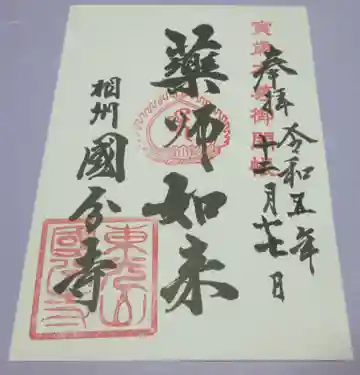 奉拝
令和五年
十二月十七日
薬師如来
相州
國分寺
東光山
國分寺